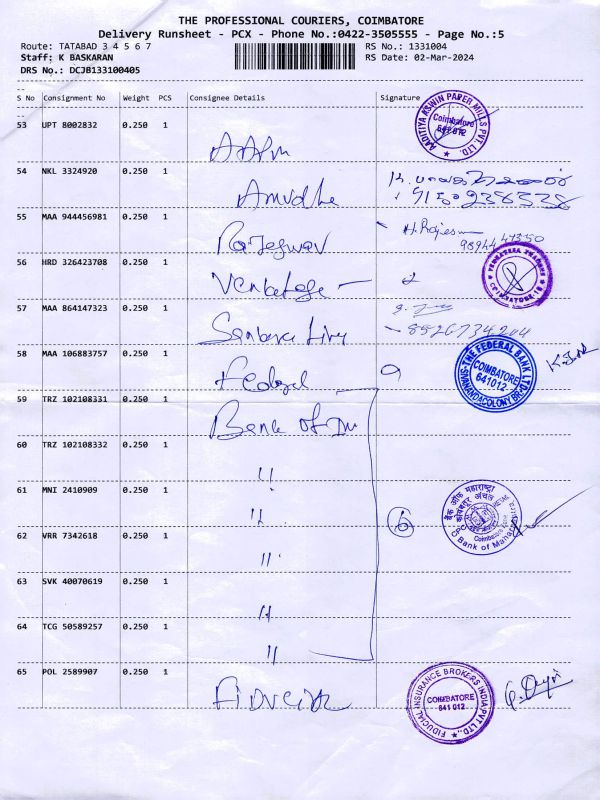 THE PROFESSIONAL COURIERS, COIMBATORE
Delivery Runsheet - PCX - Phone No.:0422-3505555 - Page No.:5
Route: TATABAD 3 4 5 6 7
RS No.: 1331004
Staff: K BASKARAN
RS Date: 02-Mar-2024
DRS No.: DCJB133100405
S No Consignment No Weight PCS Consignee Details Signature
53 UPT 8002832 0.250 1
AADITIYA ASWIN PAPER MILLS PVT. LTD. Coimbatore 641 012
54 NKL 3324920 0.250 1 Anudhe
55 MAA 944456981 0.250 1 H. Rajesw
56 HRD 326423708 0.250 1
COIMBATORE-12
57 MAA 864147323 0.250 1
8526734204
58 MAA 106883757 0.250 1 Federal
THE FEDERAL BANK LTD. SIVANANDACOLONY BR. COIMBATORE 641012
59 TRZ 102108331 0.250 1 Bank of
60 TRZ 102108332 0.250 1 "
61 MNI 2410909 0.250 1 " 6
बैंक ऑफ महाराष्ट्र
Bank of Maharashtra
62 VRR 7342618 0.250 1 "
63 SVK 40070619 0.250 1 "
64 TCG 50589257 0.250 1 "
65 POL 2589907 0.250 1
FIDUCIAL INSURANCE BROKERS INDIA PVT LTD., COIMBATORE 641 012